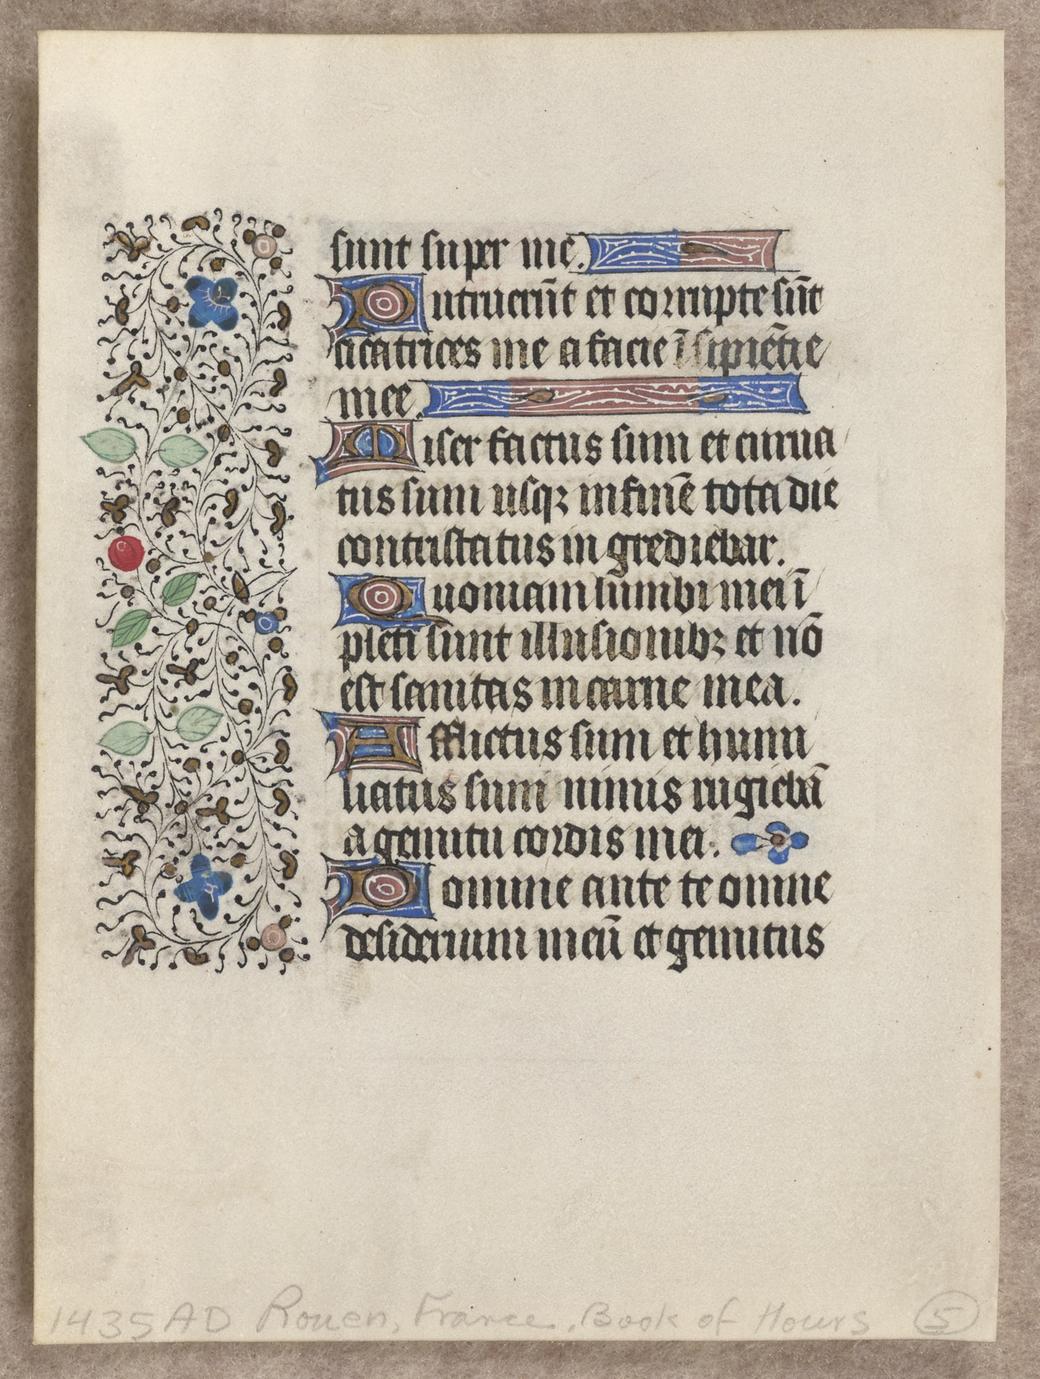 sunt super me.
Putruerūt et corrupte sūt
cicatrices me a facie īsipiētie
mee.
Miser factus sum et curua
tus sum usqꝫ in finē tota die
contristatus in grediebar.
Quoniam lumbi mei ī
pleti sunt illusionibꝫ et nō
est sanitas in carne mea.
Afflictus sum et humi
liatus sum nimis rugiebā
a gemitu cordis mei.
Domine ante te omne
desiderium meū et gemitus
1435 AD Rouen, France, Book of Hours 5